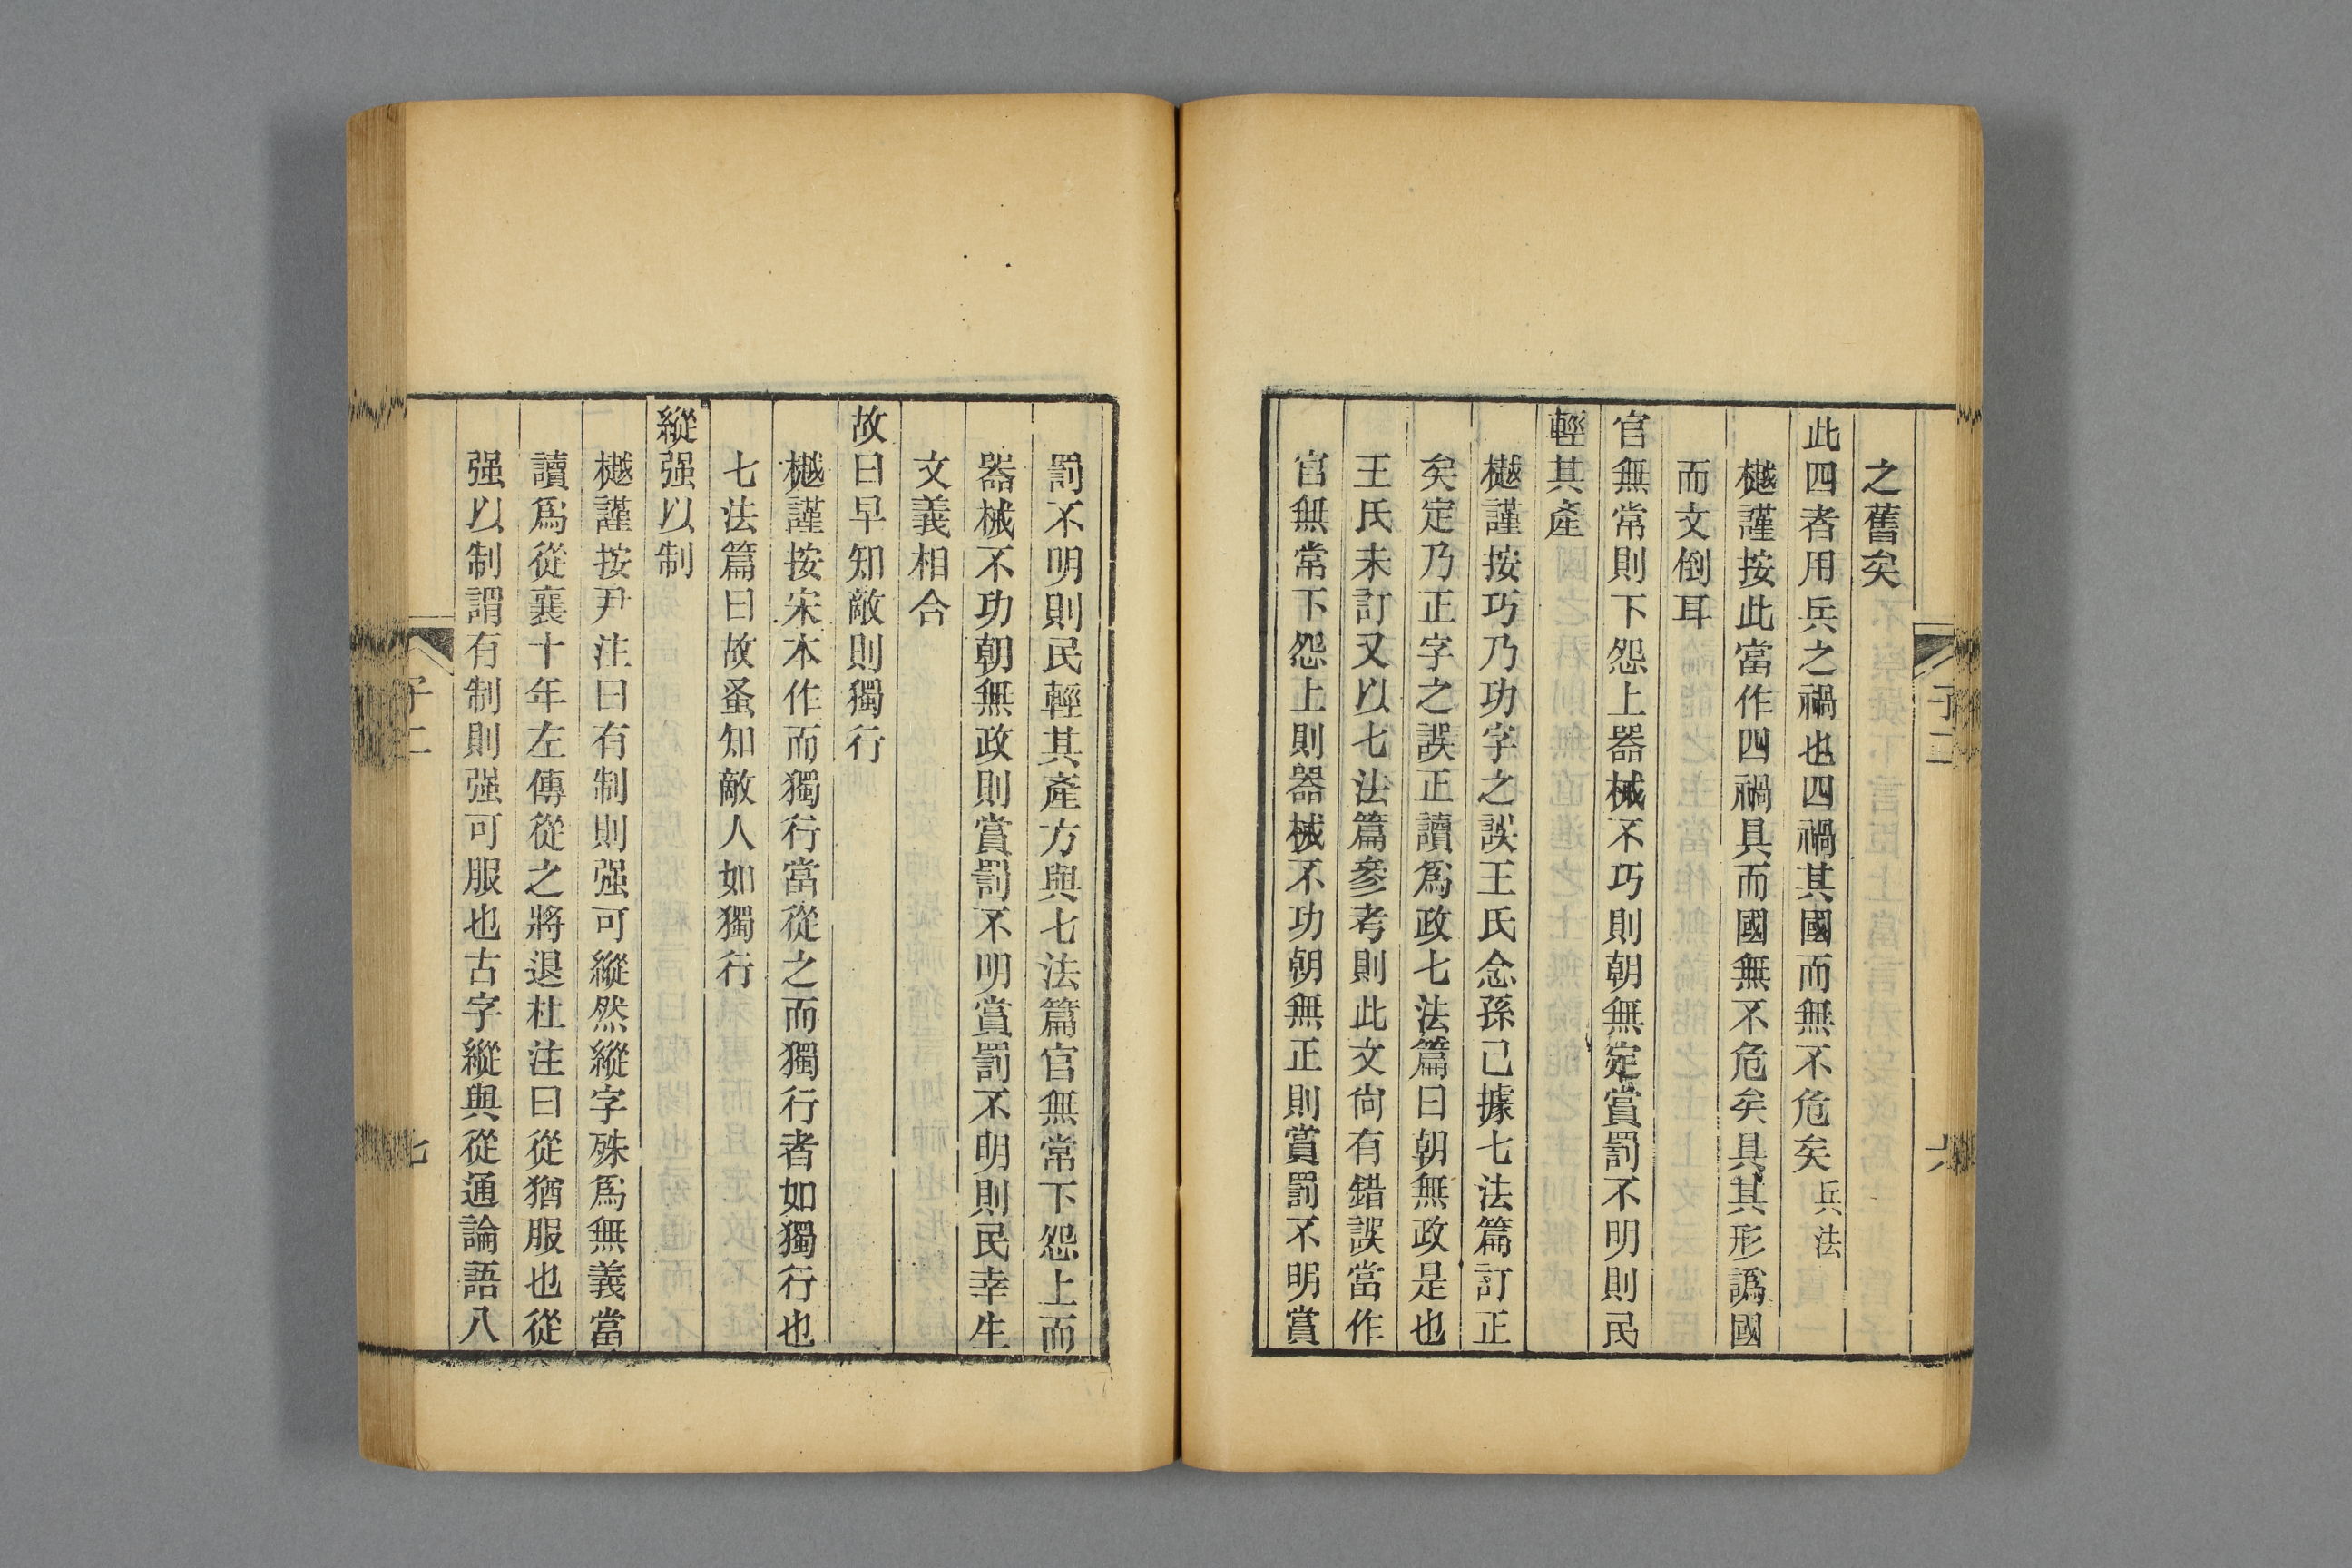 之舊矣
此四者用兵之禍也四禍其國而無不危矣兵法
樾謹按此當作四禍具而國無不危矣具其形譌國
而文倒耳
官無常則下怨上器械不巧則朝無定賞罰不明則民
輕其產
樾謹按巧乃功字之誤王氏念孫已據七法篇訂正
矣定乃正字之誤正讀爲政七法篇曰朝無政是也
王氏未訂又以七法篇參考則此文尙有錯誤當作
官無常下怨上則器械不功朝無正則賞罰不明賞
子二
六
罰不明則民輕其產方與七法篇官無常下怨上而
器械不功朝無政則賞罰不明賞罰不明則民幸生
文義相合
故曰早知敵則獨行
樾謹按宋本作而獨行當從之而獨行者如獨行也
七法篇曰故蚤知敵人如獨行
縱强以制
樾謹按尹注曰有制則强可縱然縱字殊爲無義當
讀爲從襄十年左傳從之將退杜注曰從猶服也從
强以制謂有制則强可服也古字縱與從通論語八
子二
七